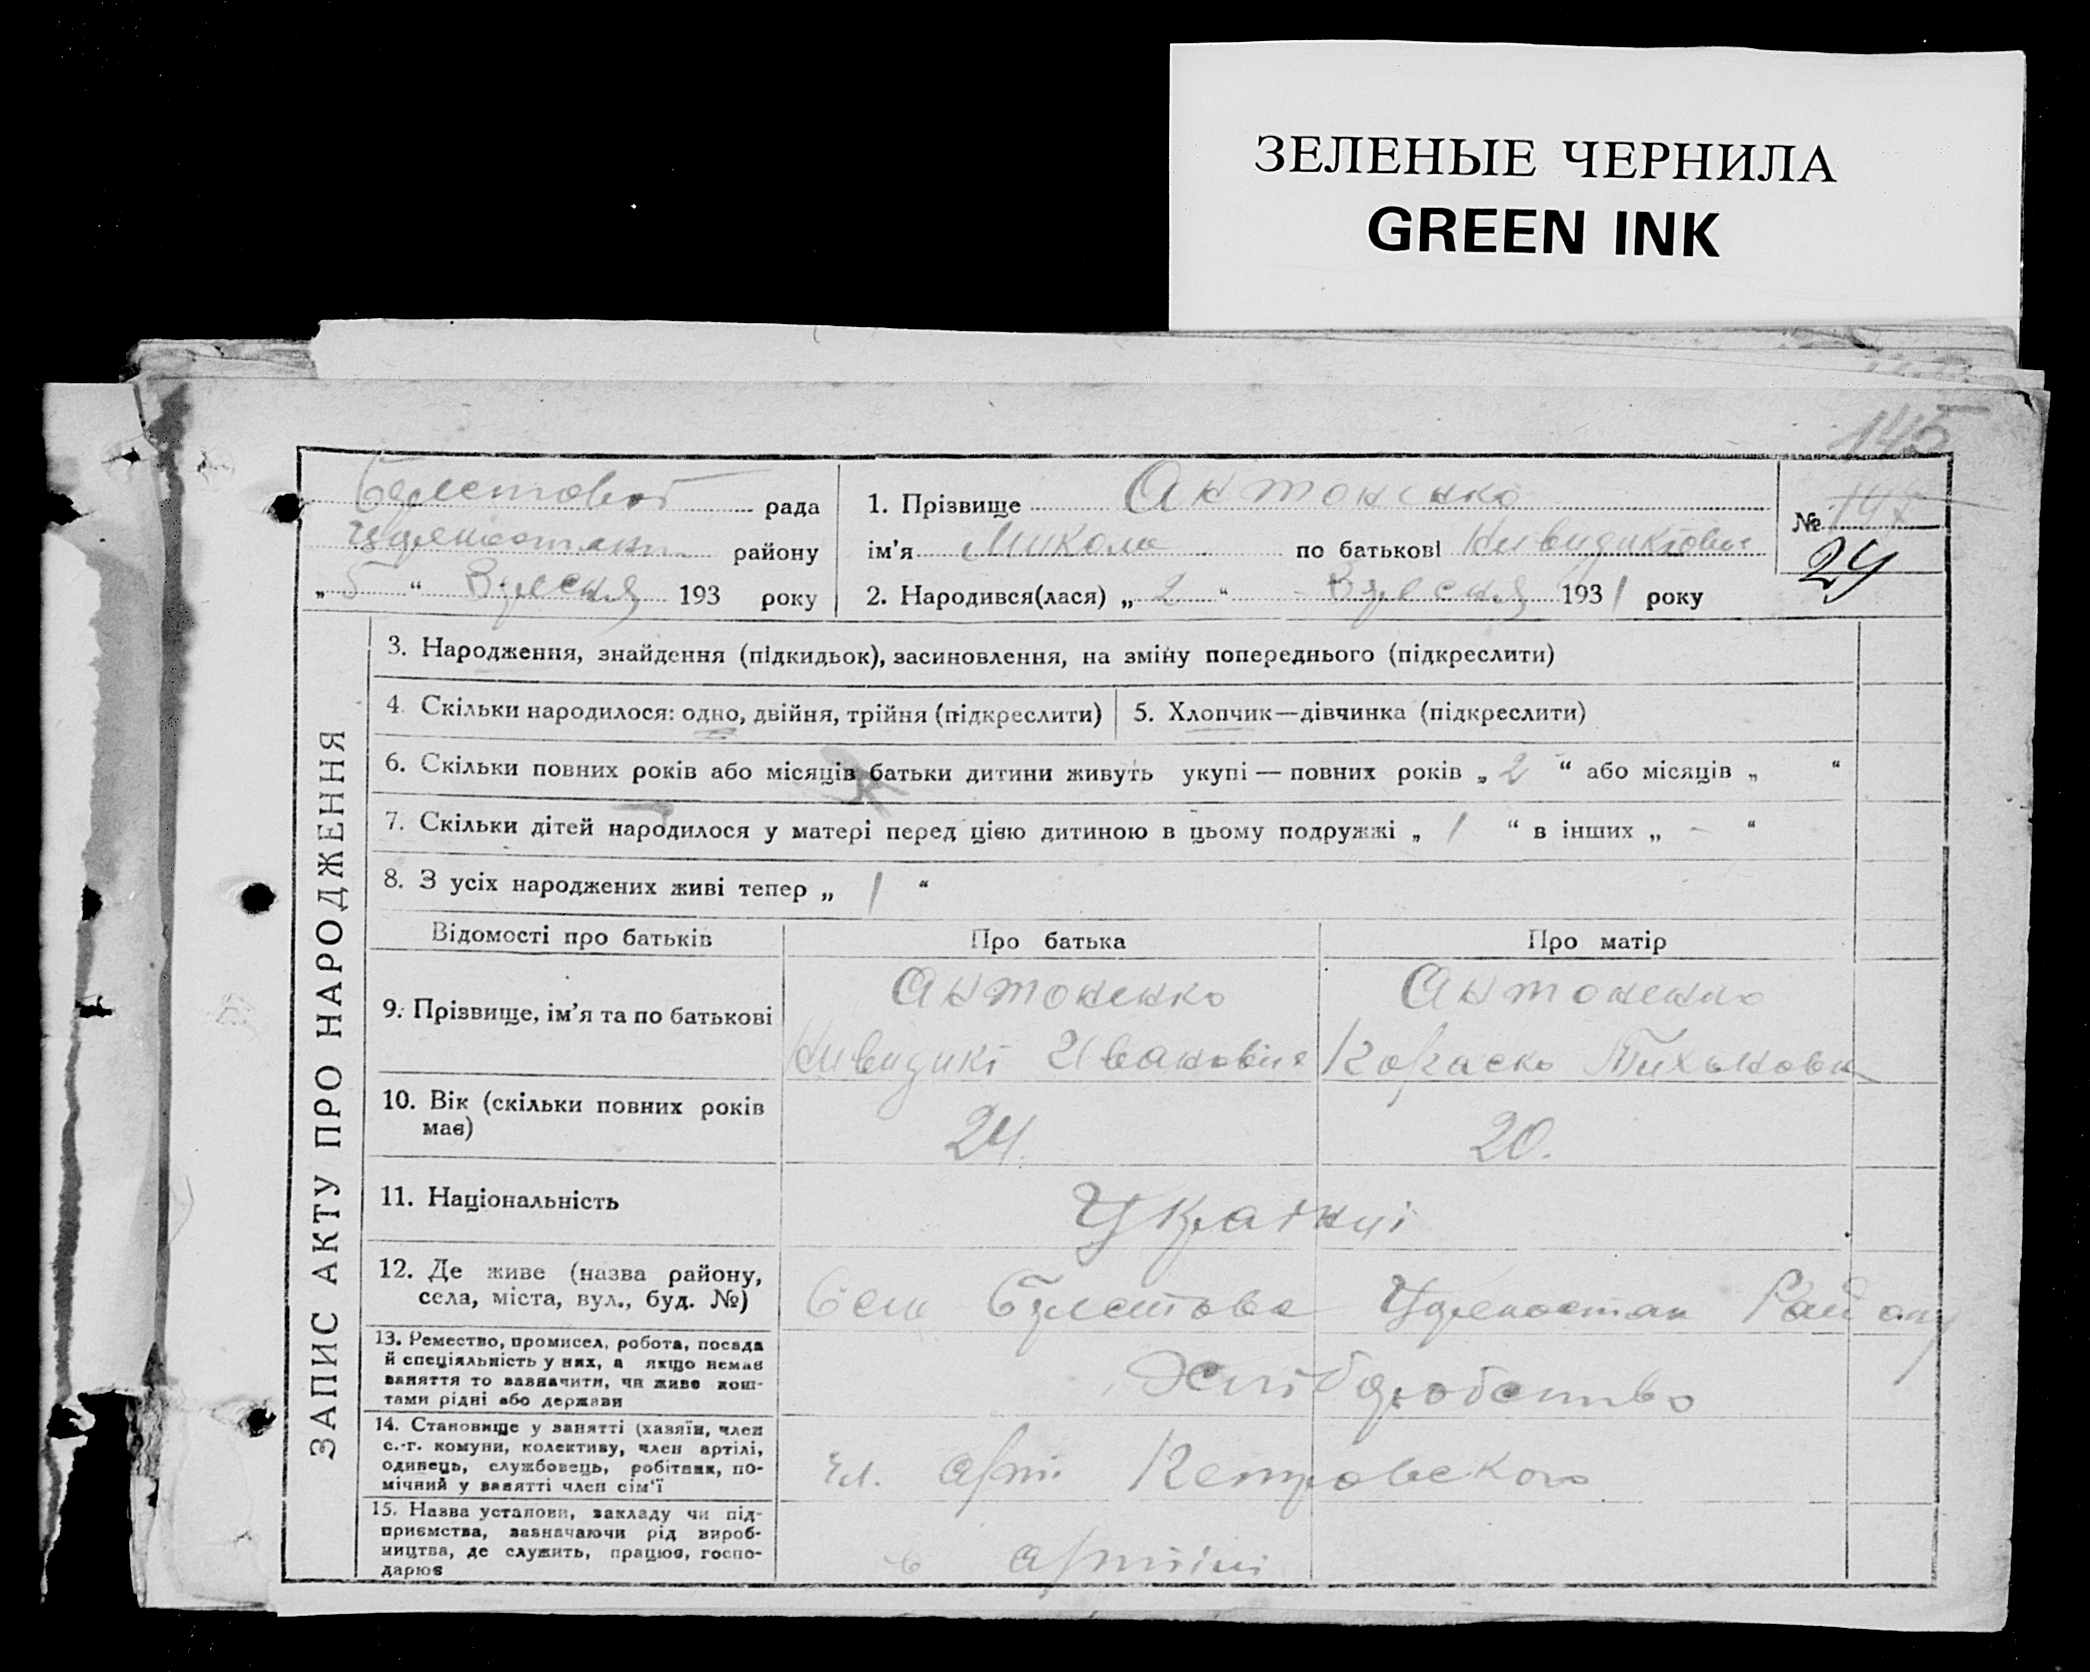 ЗЕЛЕНЫЕ ЧЕРНИЛА
GREEN INK
145
рада
району
„ 5 “ Вересня 193 року
1. Прізвище Антоненко
ім’я Микола по батькові
2. Народився(лася) „ 2 “ Вересня 1931 року
№
24
ЗАПИС АКТУ ПРО НАРОДЖЕННЯ
3. Народження, знайдення (підкидьок), засиновлення, на зміну попереднього (підкреслити)
4. Скільки народилося: одно, двійня, трійня (підкреслити)
5. Хлопчик—дівчинка (підкреслити)
6. Скільки повних років або місяців батьки дитини живуть укупі — повних років „ 2 “ або місяців „ “
7. Скільки дітей народилося у матері перед цією дитиною в цьому подружжі „ 1 “ в інших „ - “
8. З усіх народжених живі тепер „ 1 “
Відомості про батьків
Про батька
Про матір
9. Прізвище, ім’я та по батькові
Антоненко
Ивановіч
Антоненко
10. Вік (скільки повних років
має)
24.
20.
11. Національність
Українці
12. Де живе (назва району,
села, міста, вул., буд. №)
Село Району
13. Ремество, промисел, робота, посада
й спеціяльність у них, а якщо немає
заняття то зазначити, чи живе кош-
тами рідні або держави
Хліборобство
14. Становище у занятті (хазяїн, член
с.-г. комуни, колективу, член артілі,
одинець, службовець, робітник, по-
мічний у занятті член сім’ї
Чл. арті Петровського
15. Назва установи, закладу чи під-
приємства, зазначаючи рід вироб-
ництва, де служить, працює, госпо-
дарює
в артілі